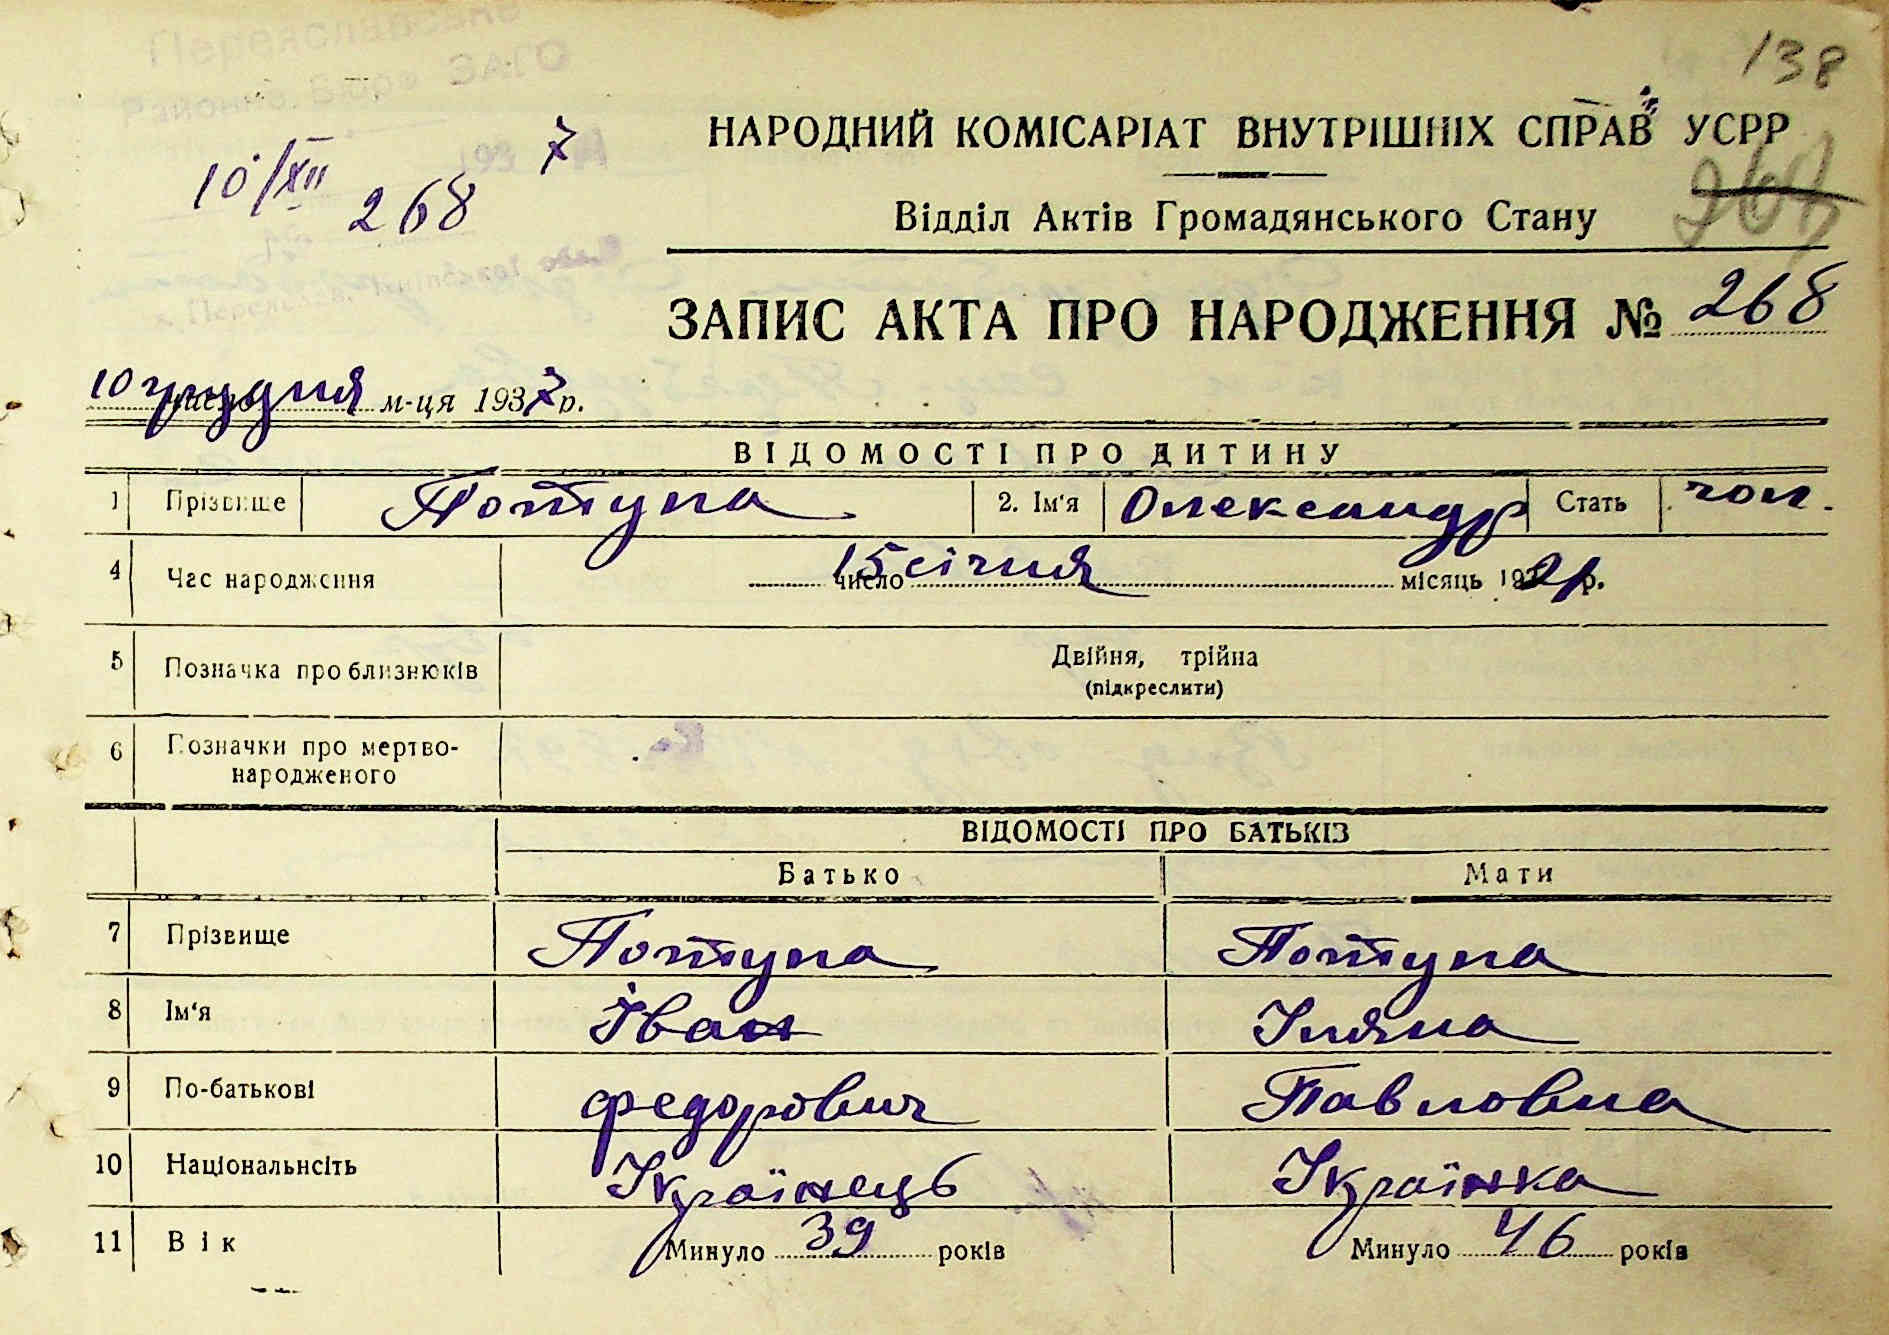 138
Переяславське
Районне Бюро ЗАГС
НАРОДНИЙ КОМІСАРІАТ ВНУТРІШНІХ СПРАВ УСРР
10/XII 7
268
268
Відділ Актів Громадянського Стану
ЗАПИС АКТА ПРО НАРОДЖЕННЯ № 268
10 грудня число м-ця 1937 р.
ВІДОМОСТІ ПРО ДИТИНУ
1 Прізвище Потупа 2. Ім'я Олександр Стать чол.
4 Час народження 15 число січня місяць 1921 р.
5 Позначка про близнюків Двійня, трійна
(підкреслити)
6 Позначки про мертво-
народженого
ВІДОМОСТІ ПРО БАТЬКІВ
Батько Мати
7 Прізвище Потупа Потупа
8 Ім'я Іван Уляна
9 По-батькові Федорович Павловна
10 Національнсіть Українець Українка
11 Вік Минуло 39 років Минуло 46 років